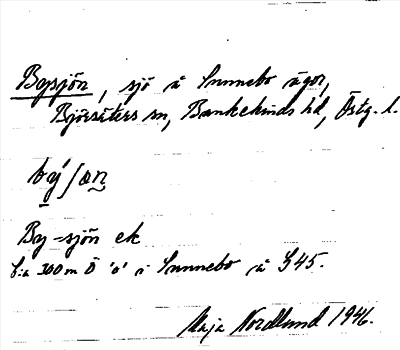 Bysjön, sjö å Sunnebo ägor,
Björsäters sn, Bankekinds hd, Östg. l.
by ́ʃön
By-sjön ek
c:a 300 m Ö 'o' i Sunnebo å G45.
Maja Nordlund 1946.